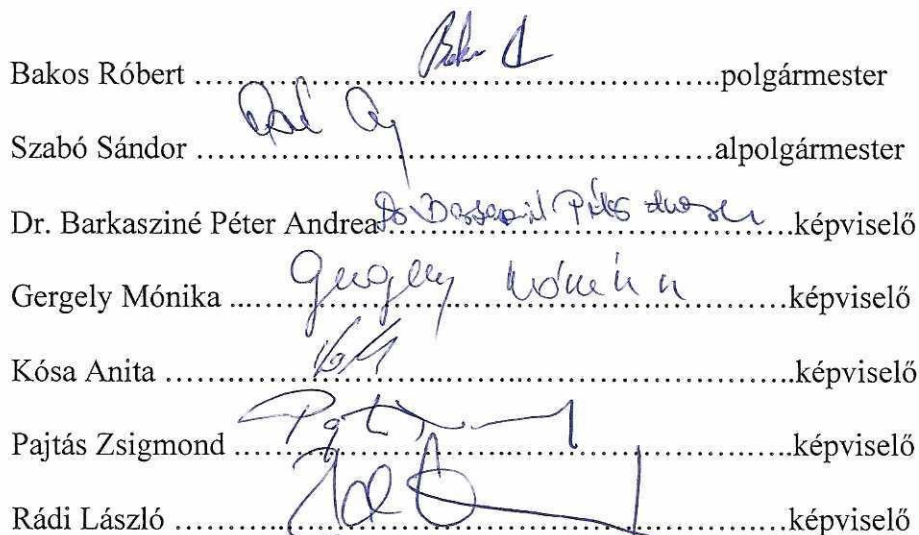 Bakos Róbert ……………………………………polgármester
Szabó Sándor ……………………………………alpolgármester
Dr. Barkasziné Péter Andrea……………………………………képviselő
Gergely Mónika ...Gergely Mónika……………képviselő
Kósa Anita ……………………………………képviselő
Pajtás Zsigmond ……………………………………képviselő
Rádi László ……………………………………képviselő